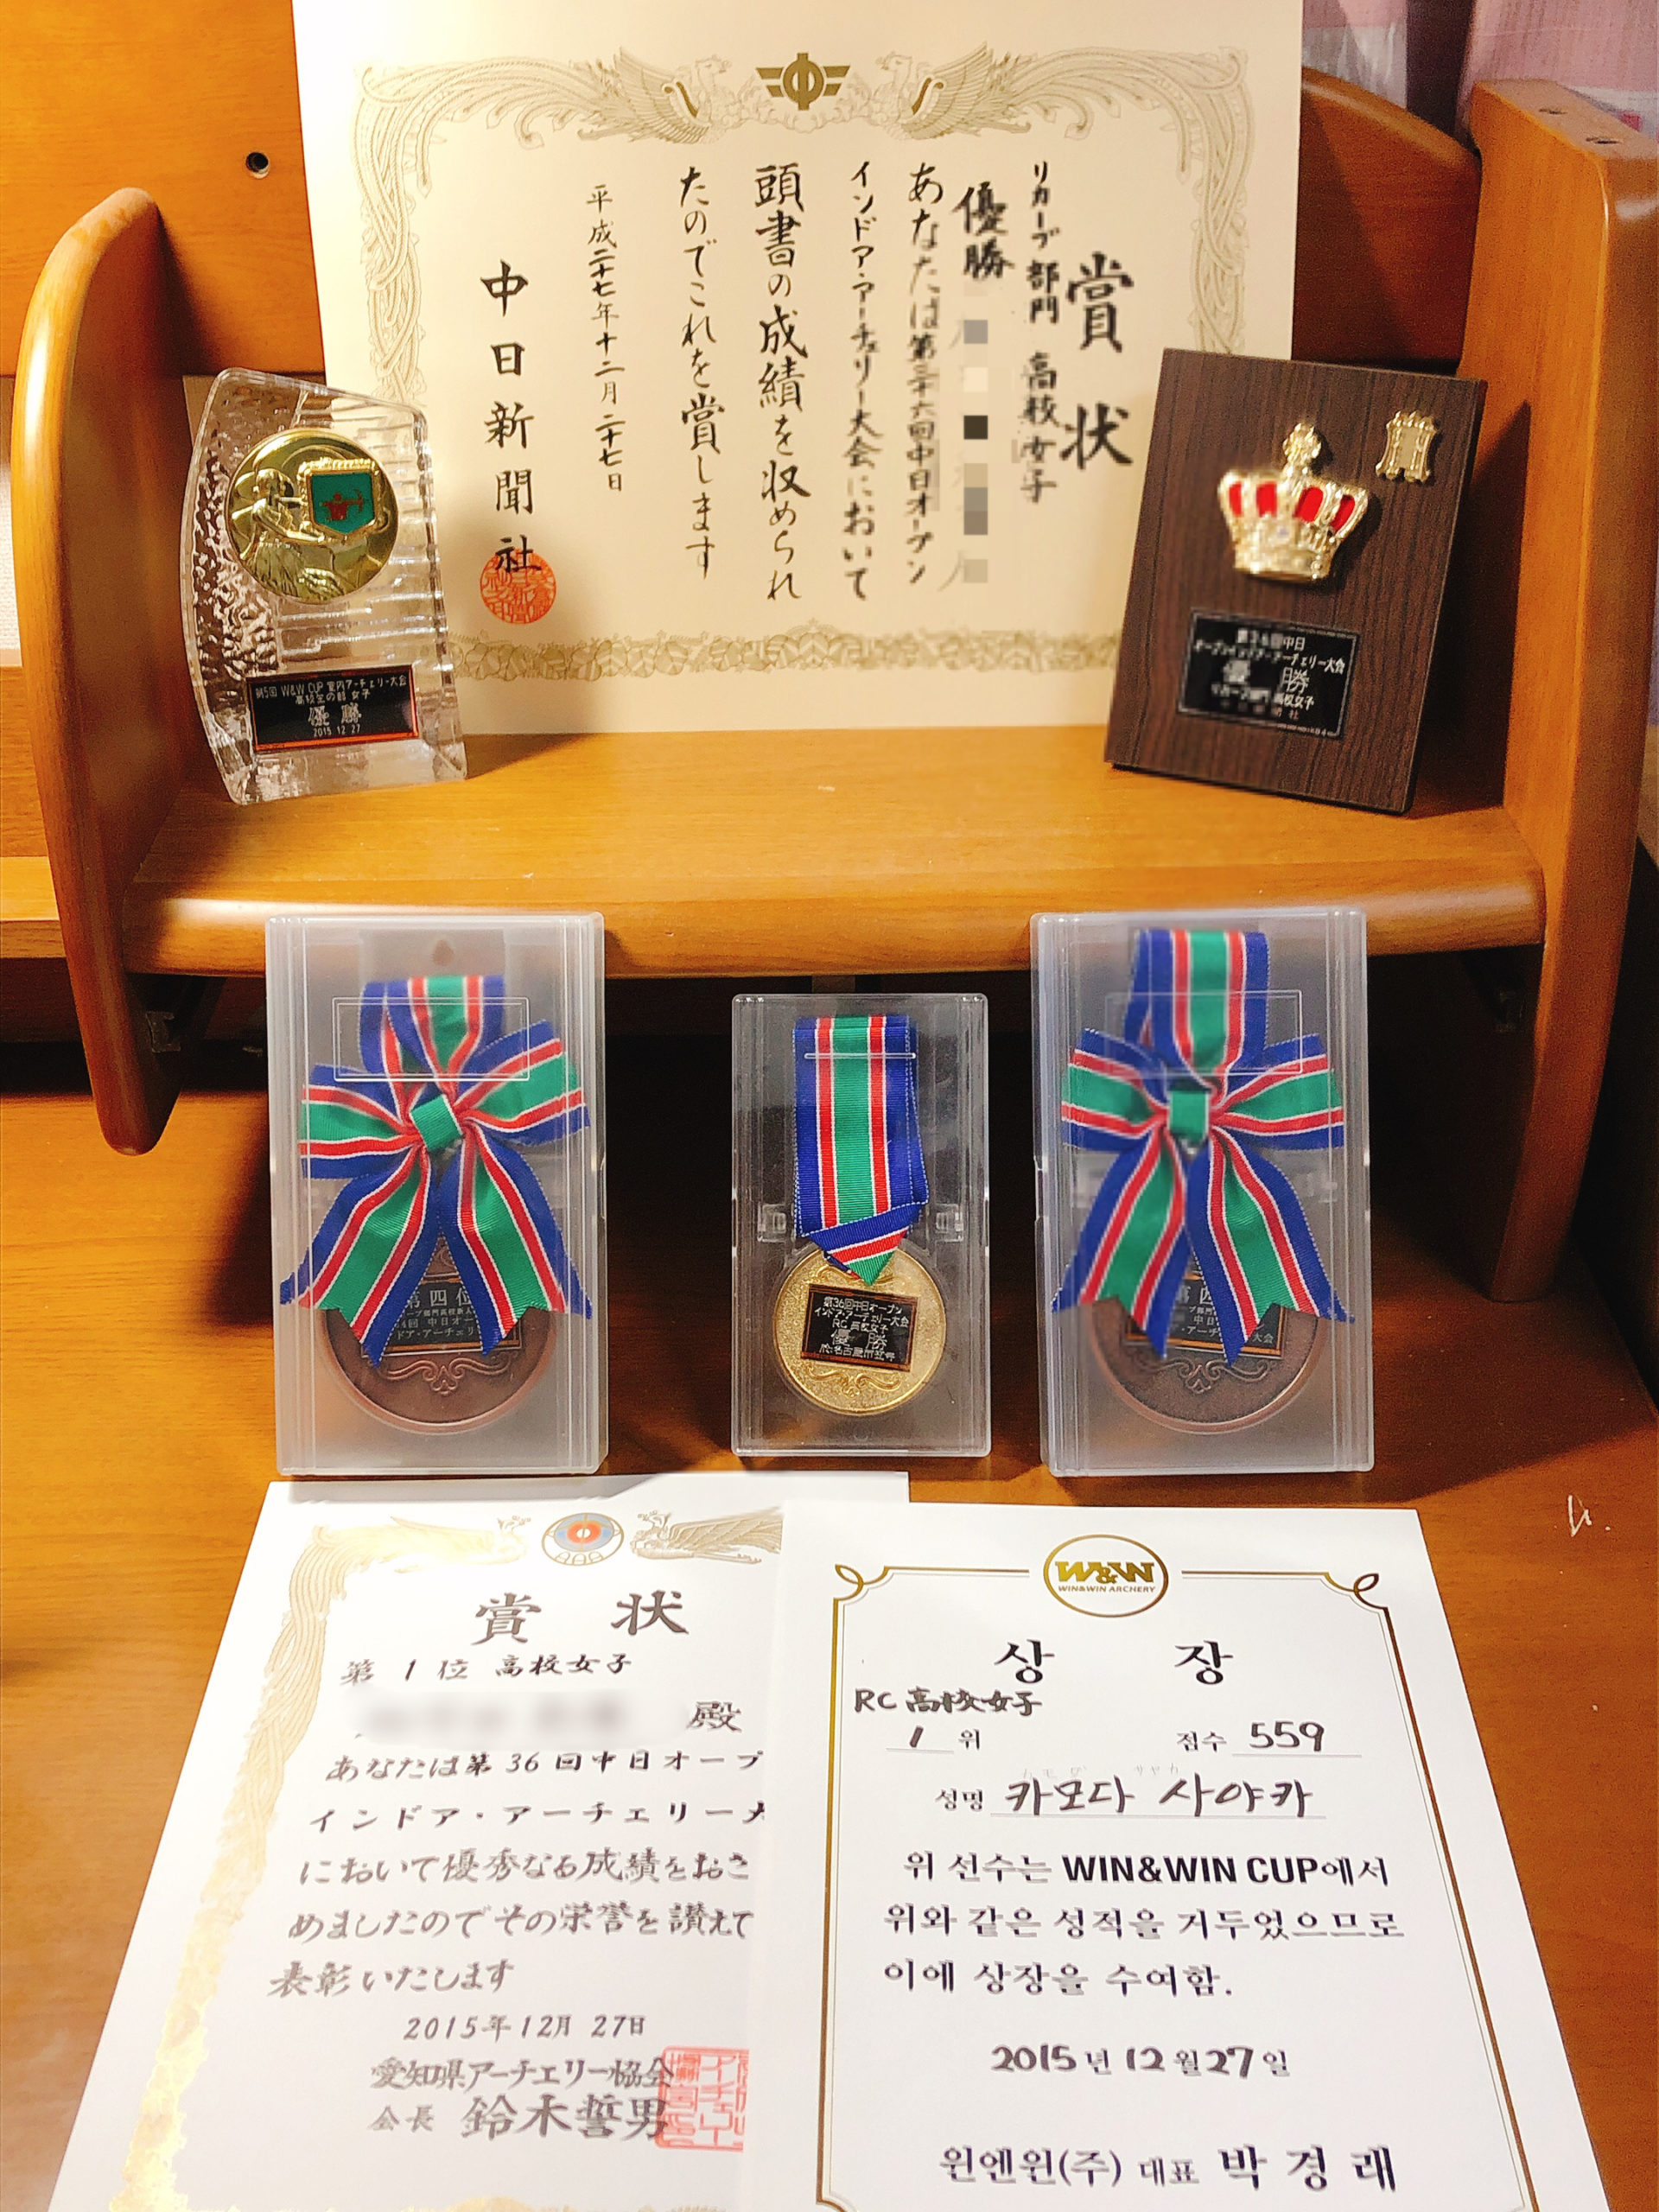 賞状
リカーブ部門 高校女子
優勝
あなたは第三十六回中日オープン
インドア・アーチェリー大会において
頭書の成績を収められ
たのでこれを賞します
平成二十七年十二月二十七日
中日新聞社
第5回 W&W CUP 室内アーチェリー大会
高校生の部 女子
優勝
2015 12 27
第36回中日
オープンインドア・アーチェリー大会
優 勝
リカーブ部門 高校女子
第四位
第36回中日オープン
インドア・アーチェリー大会
RC 高校女子
優勝
第四
大会
賞 状
第 1 位 高校女子
殿
あなたは第 36 回中日オープ
インドア・アーチェリー大
において優秀なる成績をおさ
めましたのでその栄誉を讃えて
表彰いたします
2015年12月 27日
愛知県アーチェリー協会
会長 鈴木誓男
W&W
WIN&WIN ARCHERY
상 장
RC 高校女子
1 위 점수 559
カモダ サヤカ
성명 카모다 사야카
위 선수는 WIN&WIN CUP에서
위와 같은 성적을 거두었으므로
이에 상장을 수여함.
2015년 12월 27일
윈엔윈(주) 대표 박경래